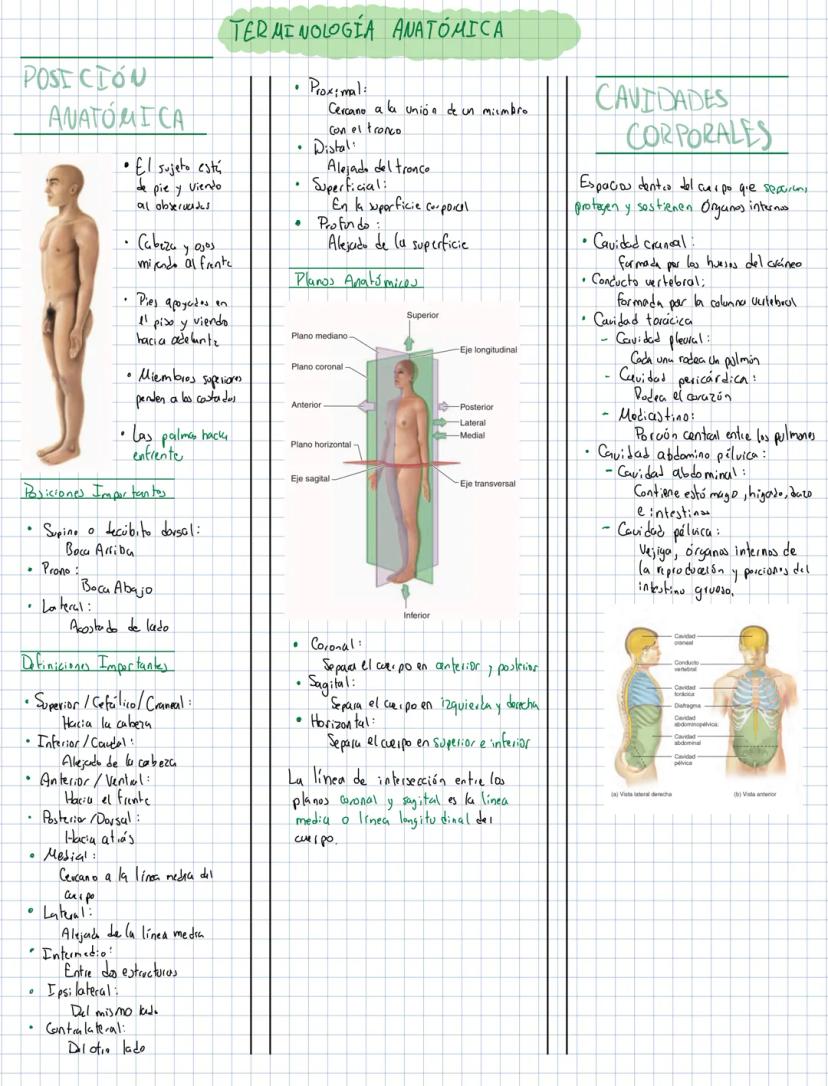 TERMINOLOGÍA ANATÓMICA
POSICIÓN
ANATÓMICA
• El sujeto está
de pie y viendo
al observador
• Cabeza y ojos
mirando al frente
• Pies apoyados en
el piso y viendo
hacia adelante
• Miembros superiores
penden a los costados
• Las palmas hacia
enfrente
Posiciones Importantes
• Supino o decúbito dorsal:
Boca Arriba
• Prono:
Boca Abajo
• Lateral:
Acostado de lado
Definiciones Importantes
• Superior / Cefálico / Craneal:
Hacia la cabeza
• Inferior / Caudal:
Alejado de la cabeza
• Anterior / Ventral:
Hacia el frente
• Posterior / Dorsal:
Hacia atrás
• Medial:
Cercano a la línea media del
cuerpo
• Lateral:
Alejado de la línea media
• Intermedio:
Entre dos estructuras
• Ipsilateral:
Del mismo lado
• Contralateral:
Del otro lado
• Proximal:
Cercano a la unión de un miembro
con el tronco
• Distal:
Alejado del tronco
• Superficial:
En la superficie corporal
• Profundo:
Alejado de la superficie
Planos Anatómicos
Superior
Plano mediano
Eje longitudinal
Plano coronal
Anterior
Posterior
Lateral
Medial
Plano horizontal
Eje sagital
Eje transversal
Inferior
• Coronal:
Separa el cuerpo en anterior y posterior
• Sagital:
Separa el cuerpo en izquierda y derecha
• Horizontal:
Separa el cuerpo en superior e inferior
La línea de intersección entre los
planos coronal y sagital es la línea
media o línea longitudinal del
cuerpo.
CAVIDADES
CORPORALES
Espacios dentro del cuerpo que separan,
protegen y sostienen Órganos internos
• Cavidad craneal:
formada por los huesos del cráneo
• Conducto vertebral:
formada por la columna vertebral
• Cavidad torácica
- Cavidad pleural:
Cada una rodea un pulmón
- Cavidad pericárdica:
Rodea el corazón
- Mediastino:
Porción central entre los pulmones
• Cavidad abdomino pélvica:
- Cavidad abdominal:
Contiene estómago, hígado, bazo
e intestinos
- Cavidad pélvica:
Vejiga, órganos internos de
la reproducción y porciones del
intestino grueso.
Cavidad
craneal
Conducto
vertebral
Cavidad
torácica
Diafragma
Cavidad
abdominopélvica:
Cavidad
abdominal
Cavidad
pélvica
(a) Vista lateral derecha
(b) Vista anterior